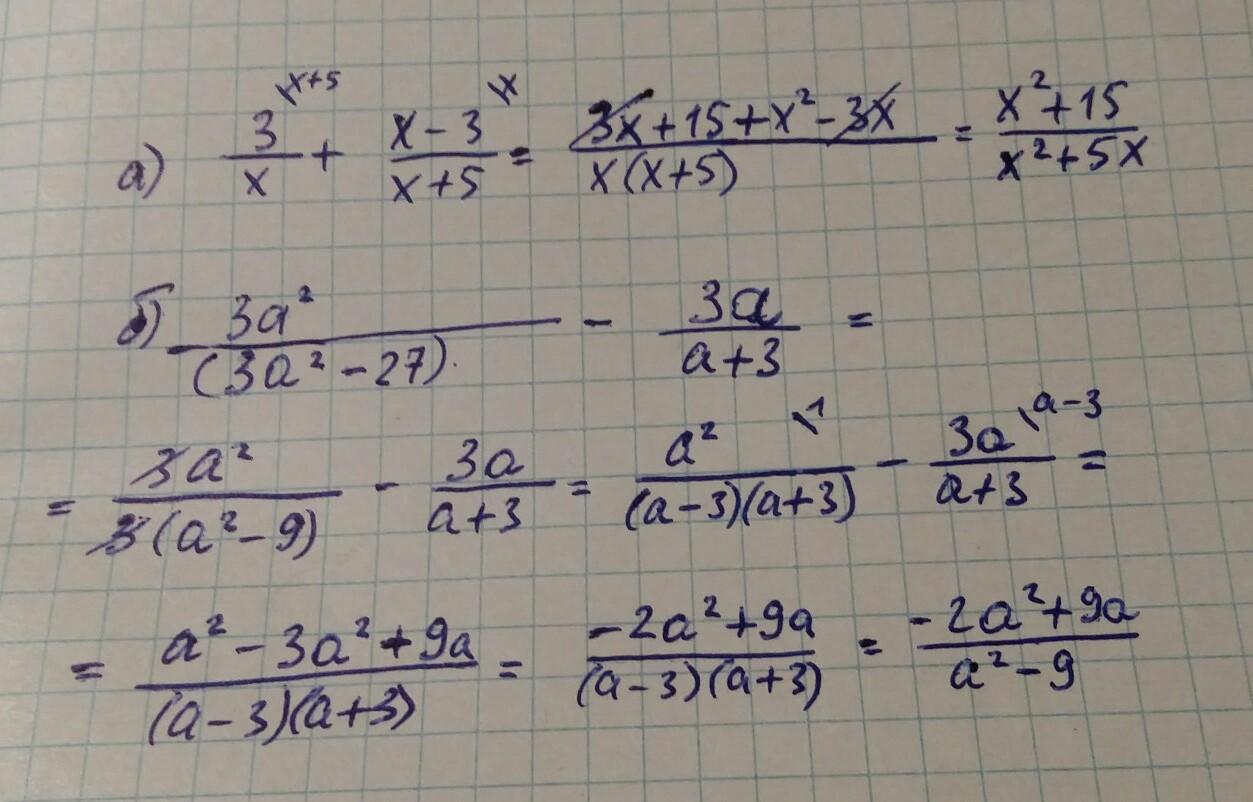 а) 3/x \x+5 + (x-3)/(x+5) \x = (3x+15+x²-3x)/(x(x+5)) = (x²+15)/(x²+5x)
б) 3a²/(3a²-27) - 3a/(a+3) =
= 3a²/(3(a²-9)) - 3a/(a+3) = a²/((a-3)(a+3)) \1 - 3a/(a+3) \a-3 =
= (a²-3a²+9a)/((a-3)(a+3)) = (-2a²+9a)/((a-3)(a+3)) = (-2a²+9a)/(a²-9)